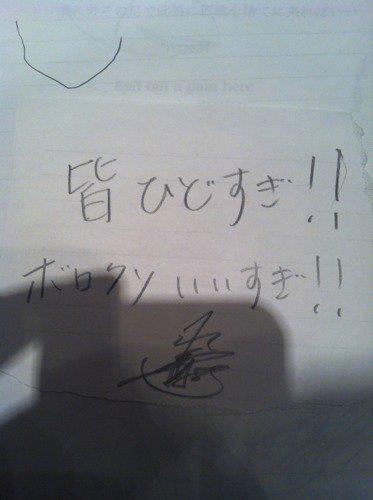 "repeat"
Spit out a pain here
皆ひどすぎ!!
ボロクソいいすぎ!!